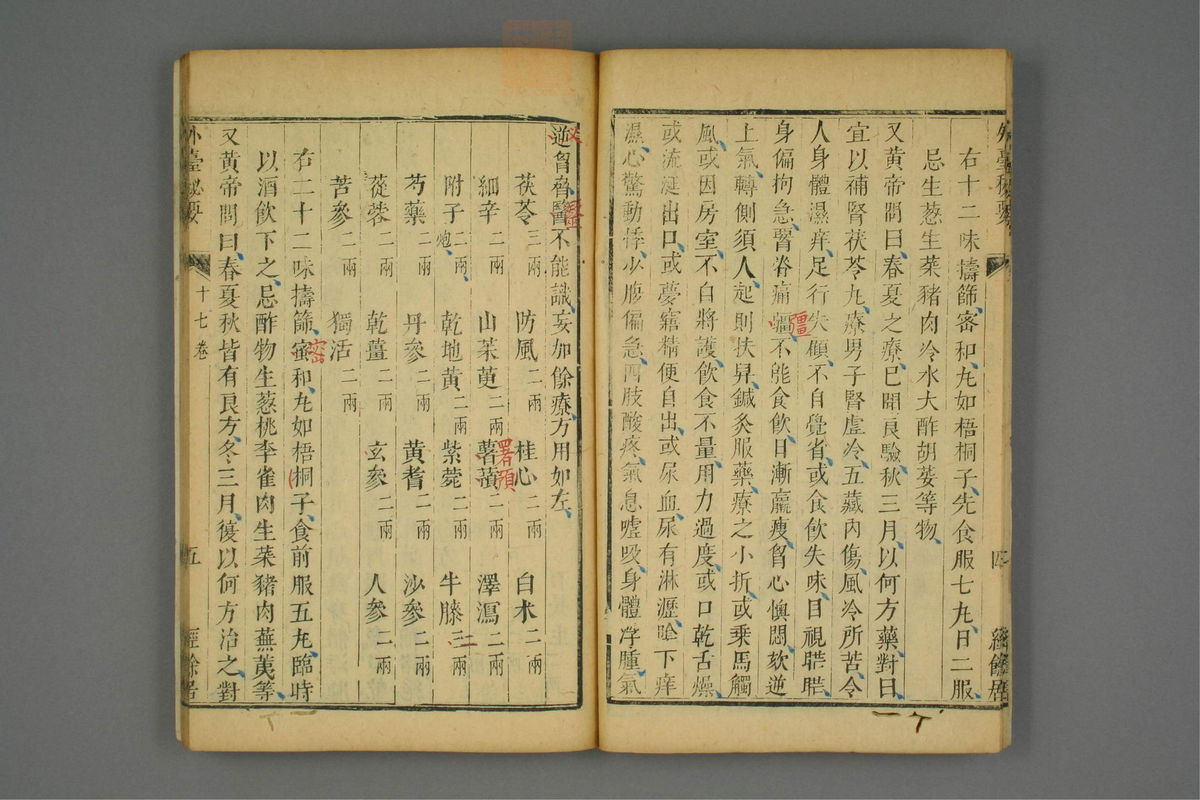 右十二味擣篩、宻和、丸如梧桐子、先食服七丸、日二服
忌生葱生菜豬肉冷水大酢胡荽等物、
又黃帝問曰、春夏之療、已聞良驗、秋三月、以何方藥、對曰、
宜以補腎茯苓丸、療男子腎虛冷、五藏內傷、風冷所苦、令
人身體濕痒、足行失顧、不自覺省、或食飲失味、目視䀮䀮、
身偏拘急、腎脊痛彊、不能食飲、日漸羸瘦、胷心懊悶、欬逆
疆
上氣、轉側須人、起則扶舁、鍼灸服藥、療之小折、或乘馬觸
風、或因房室、不自將護、飲食不量、用力過度、或口乾舌燥、
或流涎出口、或夢寤精便自出、或尿血、尿有淋瀝、陰下痒
濕、心驚動悸、少腹偏急、四肢酸疼、氣息噓吸、身體浮腫、氣
逆胷脅、醫不能識、妄加餘療、方用如左、
茯苓三兩 防風二兩 桂心二兩 白朮二兩
細辛二兩 山茱萸二兩 薯蕷二兩 澤瀉二兩
附子二兩炮、 乾地黃二兩 紫菀二兩 牛膝三兩
二
芍藥二兩 丹參二兩 黃耆二兩 沙參二兩
蓯蓉二兩 乾薑二兩 玄參二兩 人參二兩
苦參二兩 獨活二兩
右二十二味擣篩、蜜和、丸如梧桐子、食前服五丸、臨時
宻
以酒飲下之、忌酢物生葱桃李雀肉生菜豬肉蕪荑等、
又黃帝問曰、春夏秋皆有良方、冬三月、復以何方治之、對
外臺秘要 十七卷 五 經餘居